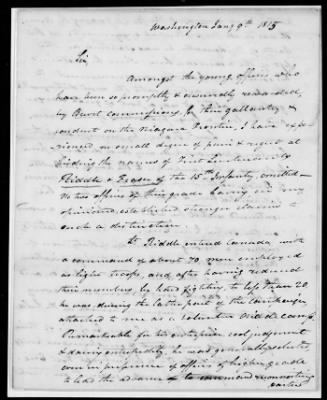 Washington Jany 9th 1815
Sir,
Amongst the young officers who
have been so promptly & deservedly rewarded,
by Brevet commissions, for their gallantry &
conduct on the Niagara Frontier, I have expe
rienced no small degree of pain & regret at
finding the names of First Lieutenants
Riddle & Frazer of the 15th Infantry, omitted—
No two officers of their grade having in my
opinion, established stronger claims to
such a distinction.
Lt. Riddle entered Canada with
a command of about 70 men employed
as light troops, and after having reduced
their numbers, by hard fighting, to less than 20
he was, during the latter part of the Campaign,
attached to me as a volunteer aid de camp.
Remarkable for his enterprise, cool judgement
& daring intrepidity, he was generally selected,
even in preference of officers of higher grade
to lead the advance or to command reconnoitring
parties